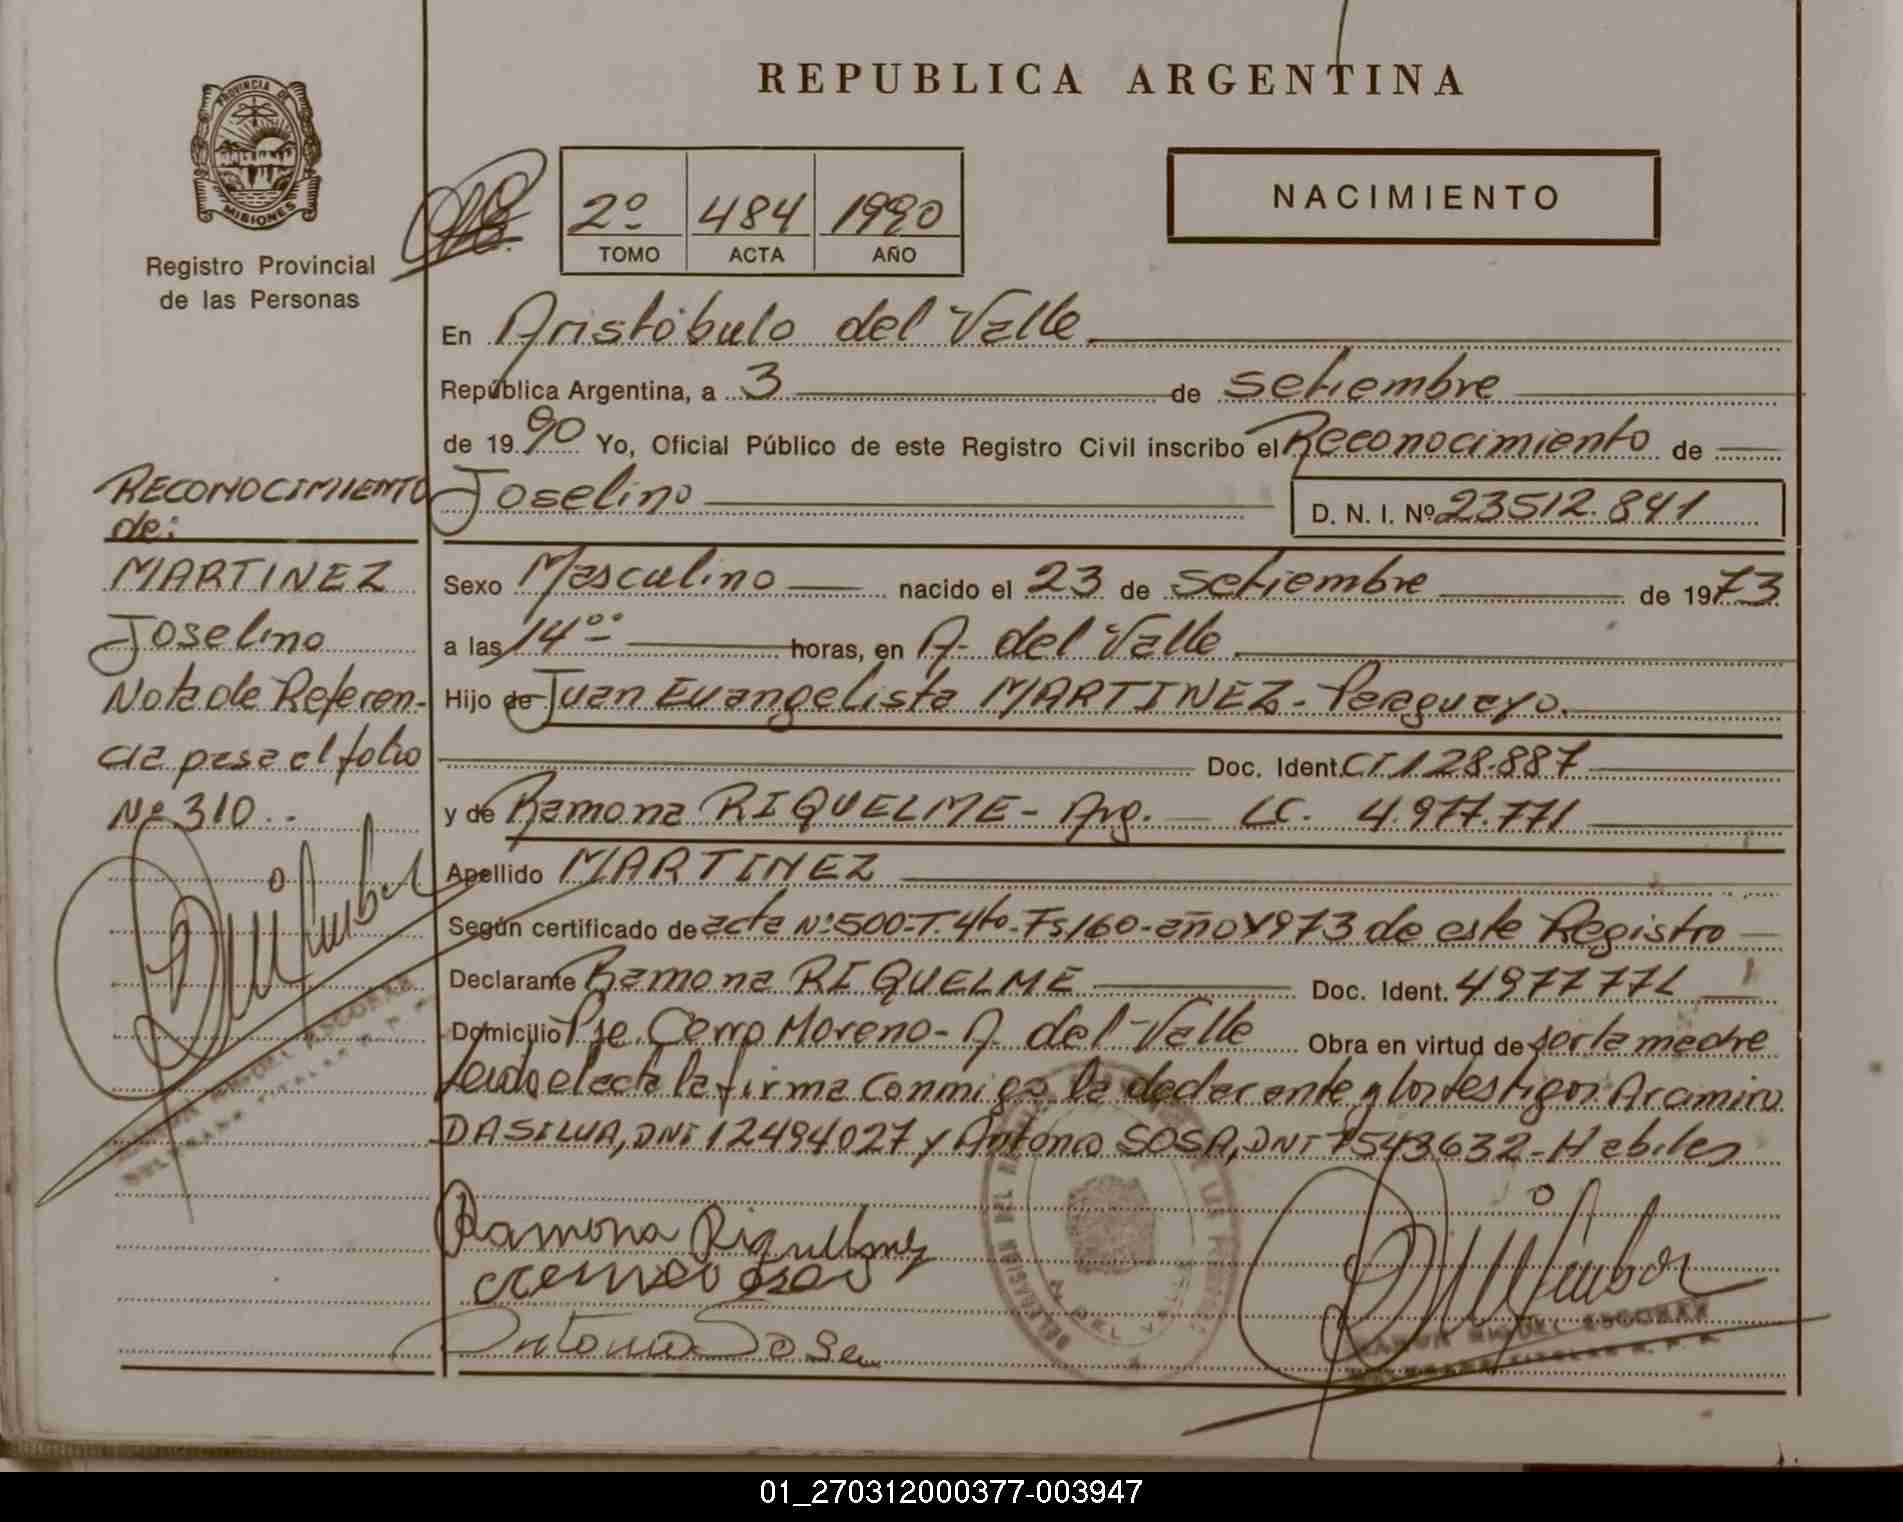 REPUBLICA ARGENTINA
PROVINCIA DE
MISIONES
Registro Provincial
de las Personas
2º 484 1990
TOMO ACTA AÑO
NACIMIENTO
En Aristóbulo del Valle.
República Argentina, a 3 de setiembre
de 1990 Yo, Oficial Público de este Registro Civil inscribo el Reconocimiento de
Joselino D. N. I. Nº 23512.841
RECONOCIMIENTO
de:
MARTINEZ
Joselino
Nota de Referen-
cia pasa el folio
Nº 310.-
Sexo Masculino nacido el 23 de setiembre de 1973
a las 14ºº horas, en A. del Valle.
Hijo de Juan Evangelista MARTINEZ- Paraguayo.
Doc. Ident. CI 128.887
y de Ramona RIQUELME - Arg. LC. 4.977.771
Apellido MARTINEZ
Según certificado de acta Nº 500-T. 4to-Fs 160-año 1973 de este Registro
Declarante Ramona RIQUELME Doc. Ident. 4977771
Domicilio Pje. Cerro Moreno- A. del Valle Obra en virtud de ser la madre
leída el acta la firma conmigo la declarante y los testigos Aramiro
DASILVA, DNI 12494027 y Antonio SOSA, DNI 7543632- Habiles
Ramona Riquelme
Antonio Sosa
RAMON MIGUEL ESCOBAR
01_270312000377-003947